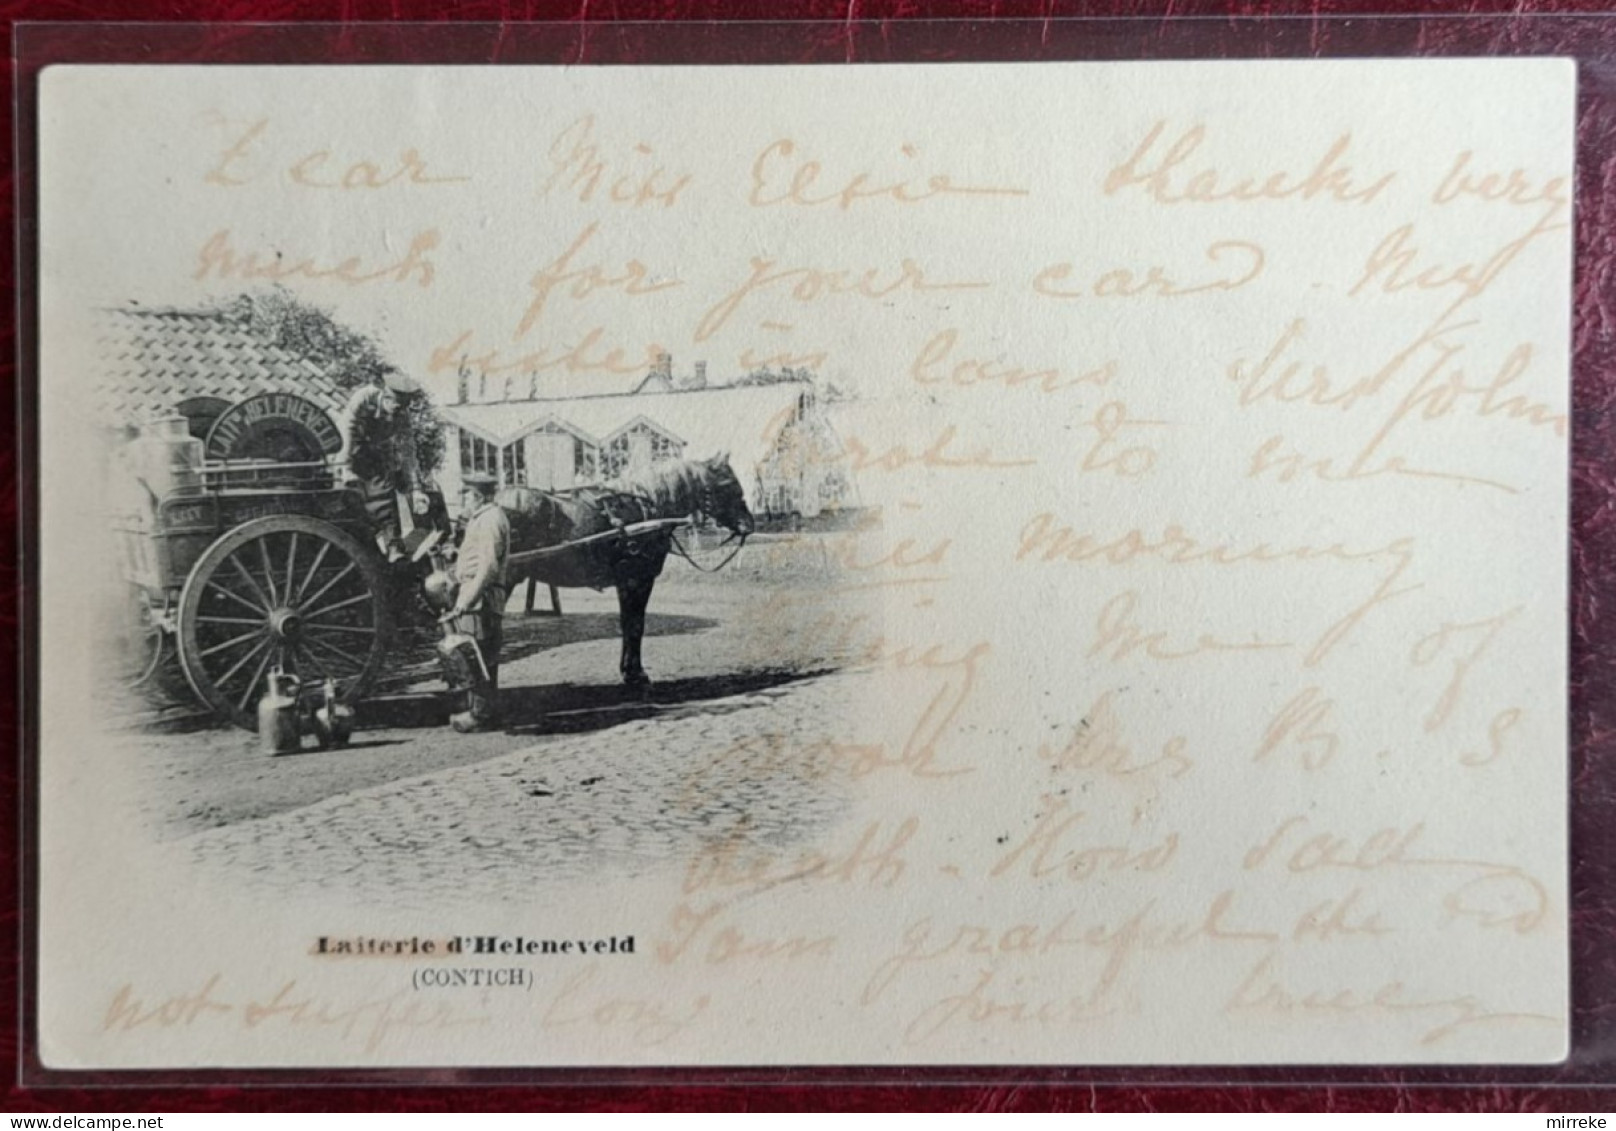 Dear Miss Elsie thanks very
much for your card. My
sister in laws Mrs John
wrote to me
this morning
telling me of
poor Mrs B. S
death - How sad
I am grateful she did
not suffer long. Yours truly
LAITIE D'HELENEVELD
LAIT
Laiterie d'Heleneveld
(CONTICH)
mirreke